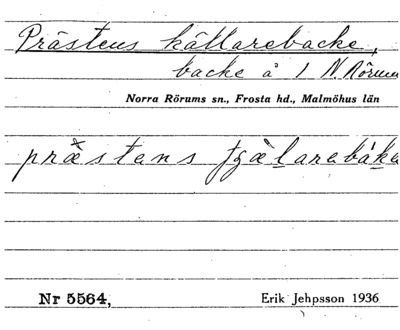 Prästens källarebacke,
backe å 1 N. Rörum
Norra Rörums sn., Frosta hd., Malmöhus län
Nr 5564, Erik Jehpsson 1936